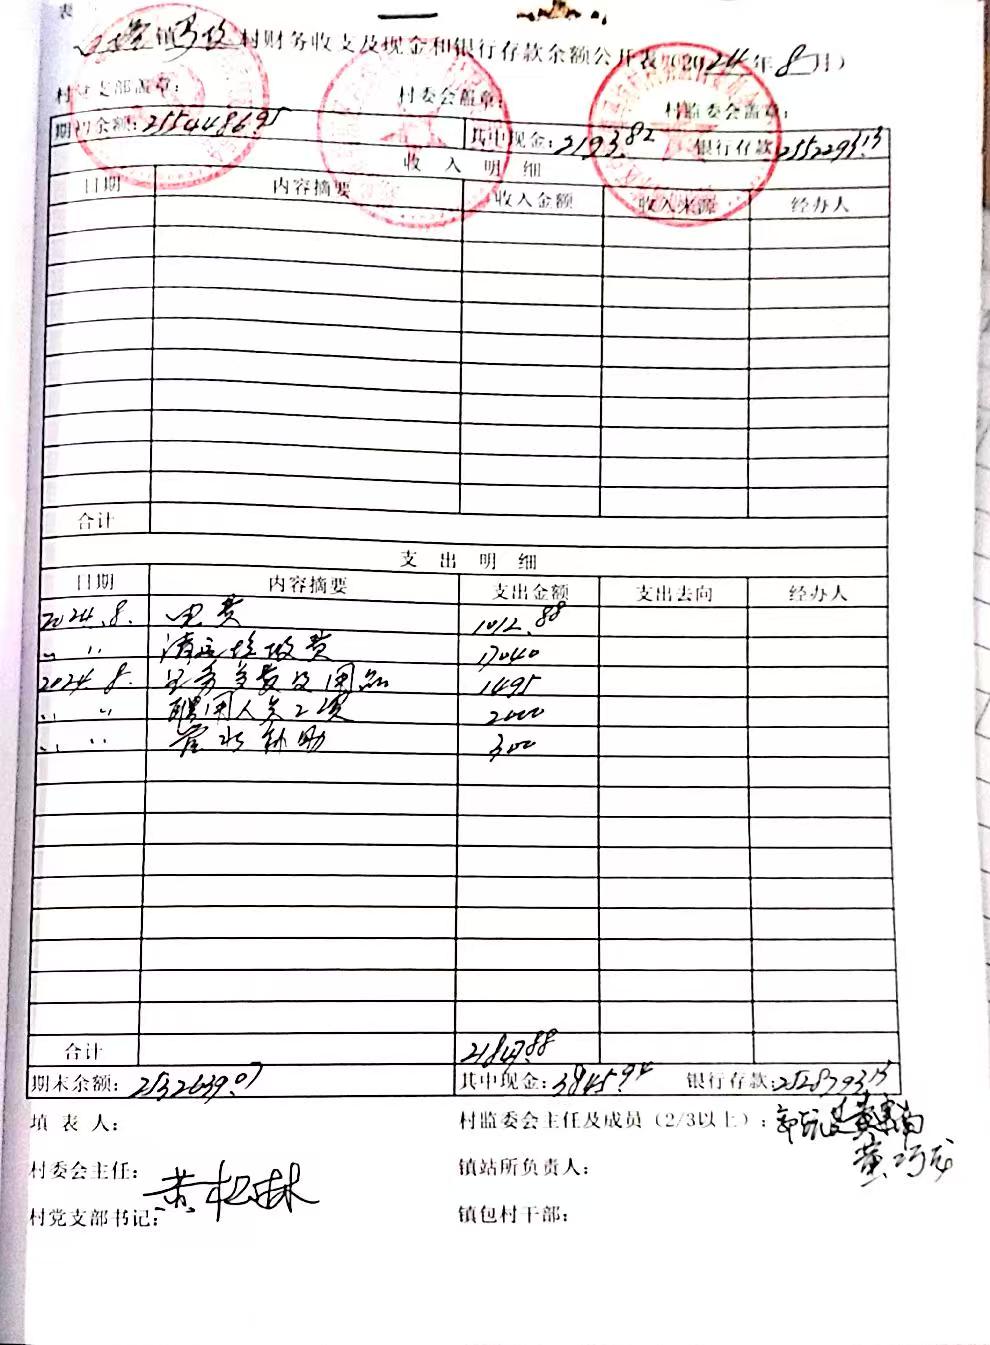 表
镇 村财务收支及现金和银行存款余额公开表(2024年8月)
村党支部盖章: 村委会盖章: 村监委会盖章:
期初余额:2554486.95 其中现金:2193.82 银行存款:2552293.13
收 入 明 细
日期 内容摘要 收入金额 收入来源 经办人
合计
支 出 明 细
日期 内容摘要 支出金额 支出去向 经办人
2024.8. 电费 1012.88
〃 〃 清运垃圾费 17040
2024.8. 及用品 1495
〃 〃 聘用人员工资 2000
〃 〃 管水补助 300
合计 21847.88
期末余额:2532639.07 其中现金:3845.94 银行存款:2528793.13
填 表 人: 村监委会主任及成员(2/3以上):
村委会主任: 镇站所负责人:
黄松林
村党支部书记: 镇包村干部: